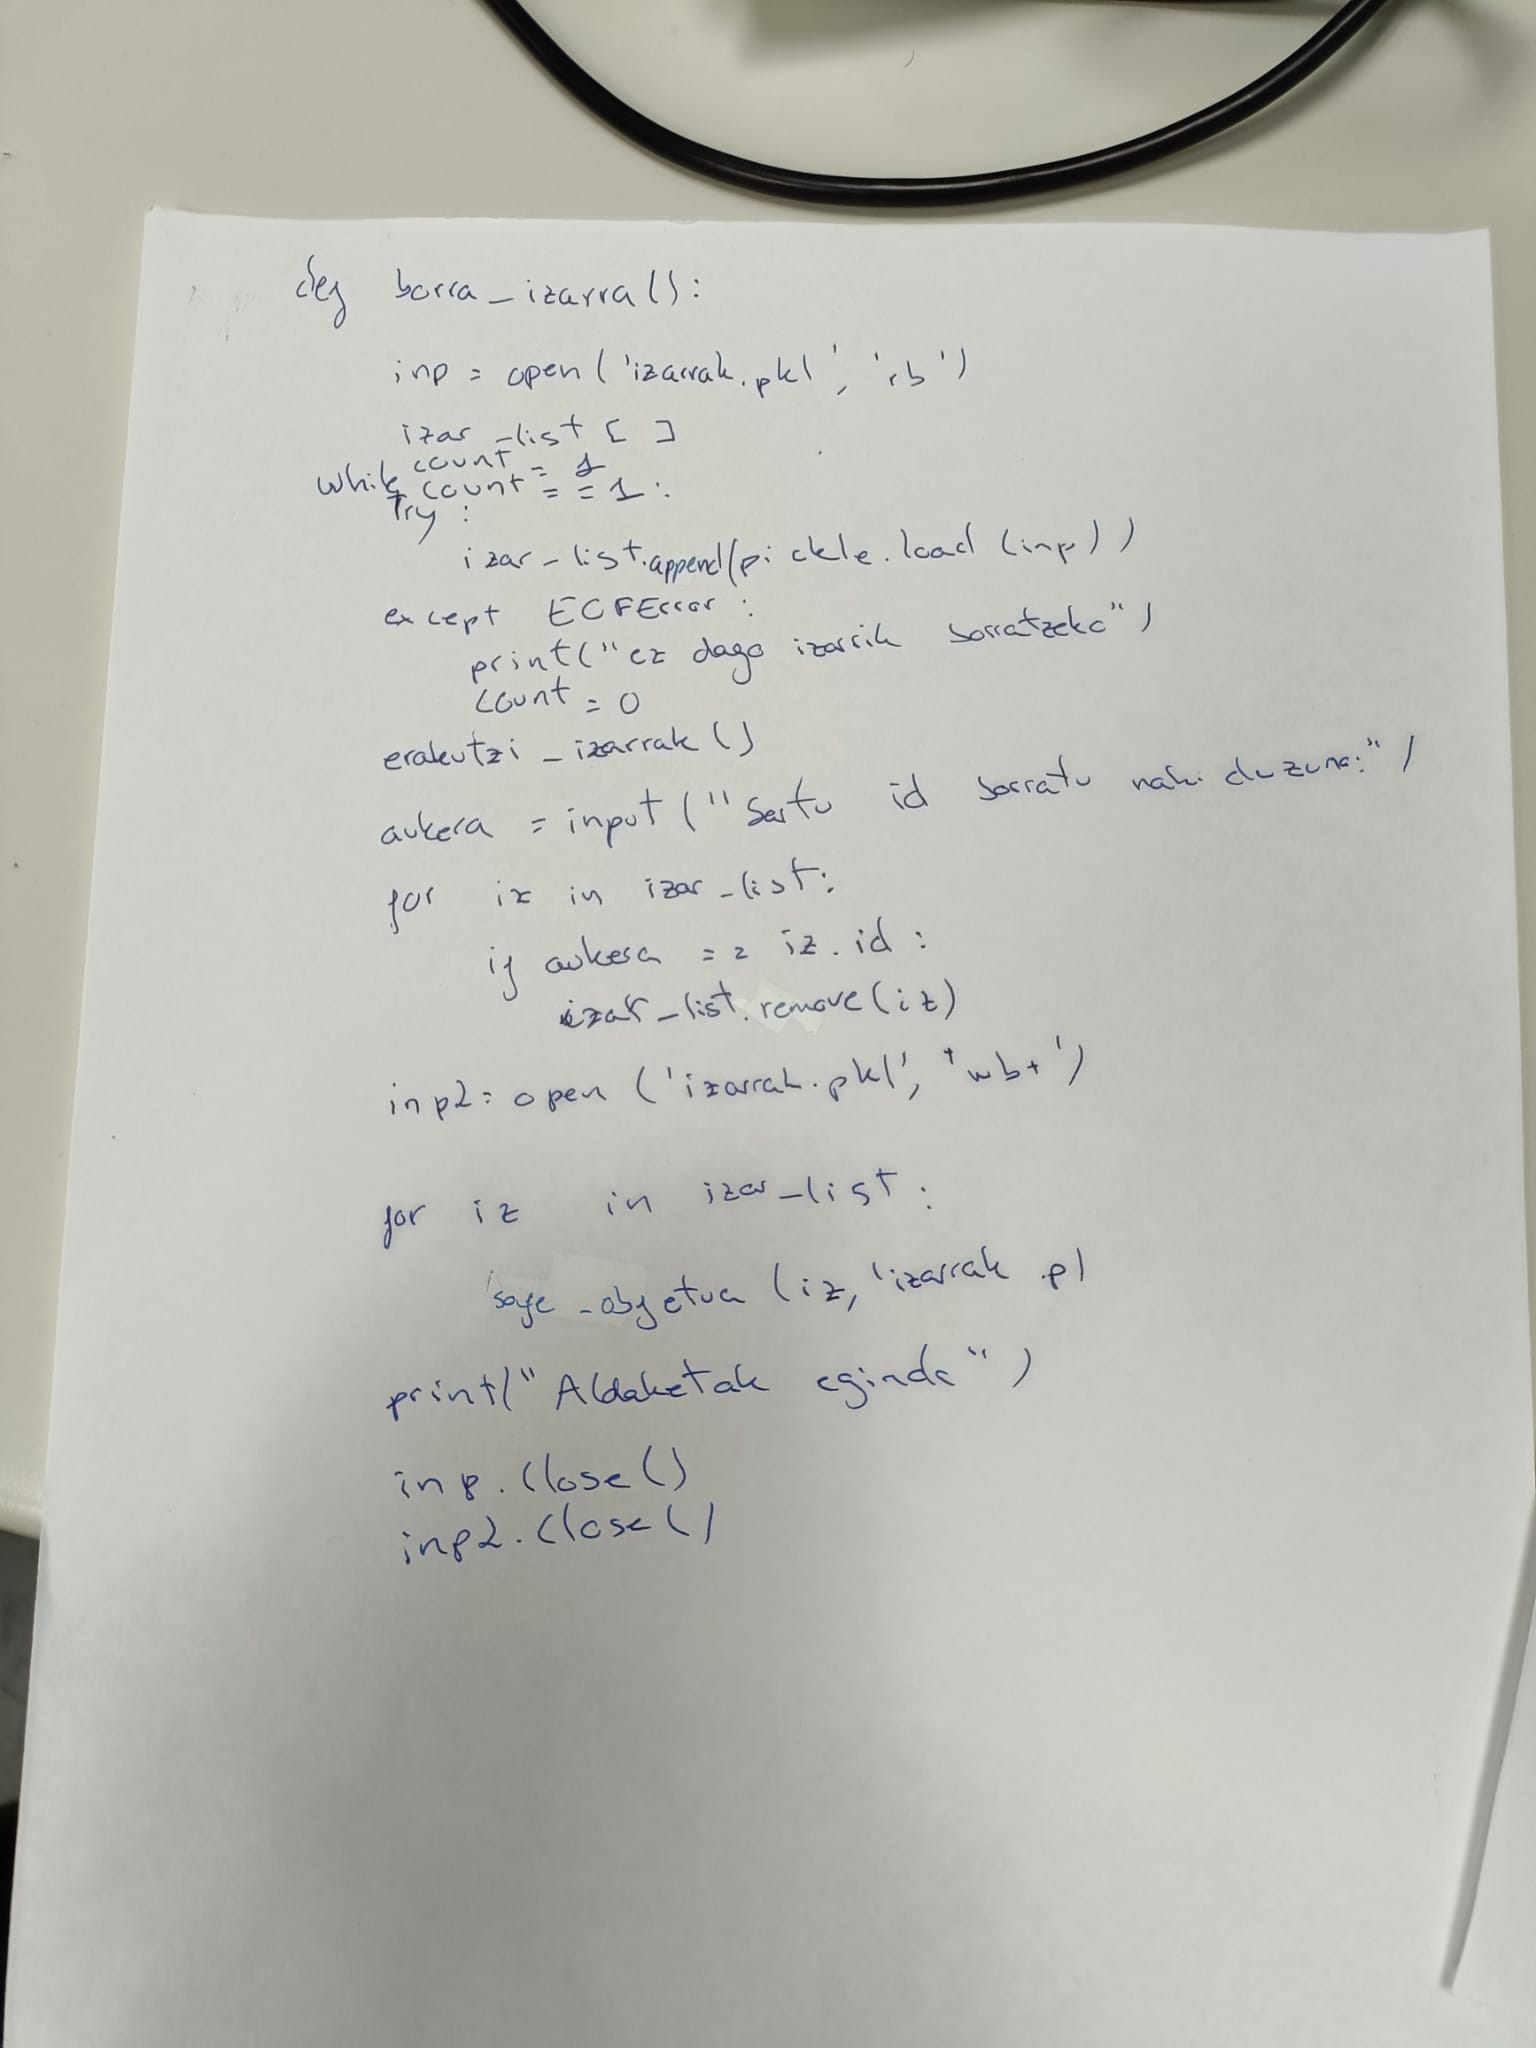 def borra_izarra():
inp = open('izarrak.pkl', 'rb')
izar_list [ ]
count = 1
while count == 1:
Try:
izar_list.append(pickle.load(inp))
except EOFError:
print("ez dago izarrik borratzeko")
count = 0
erakutzi_izarrak()
aukera = input("Sartu id borratu nahi duzuna:")
for iz in izar_list:
if aukera == iz.id:
izar_list.remove(iz)
inp2 = open('izarrak.pkl', 'wb+')
for iz in izar_list:
save_objetua(iz, 'izarrak.pl
print("Aldaketak eginda")
inp.close()
inp2.close()